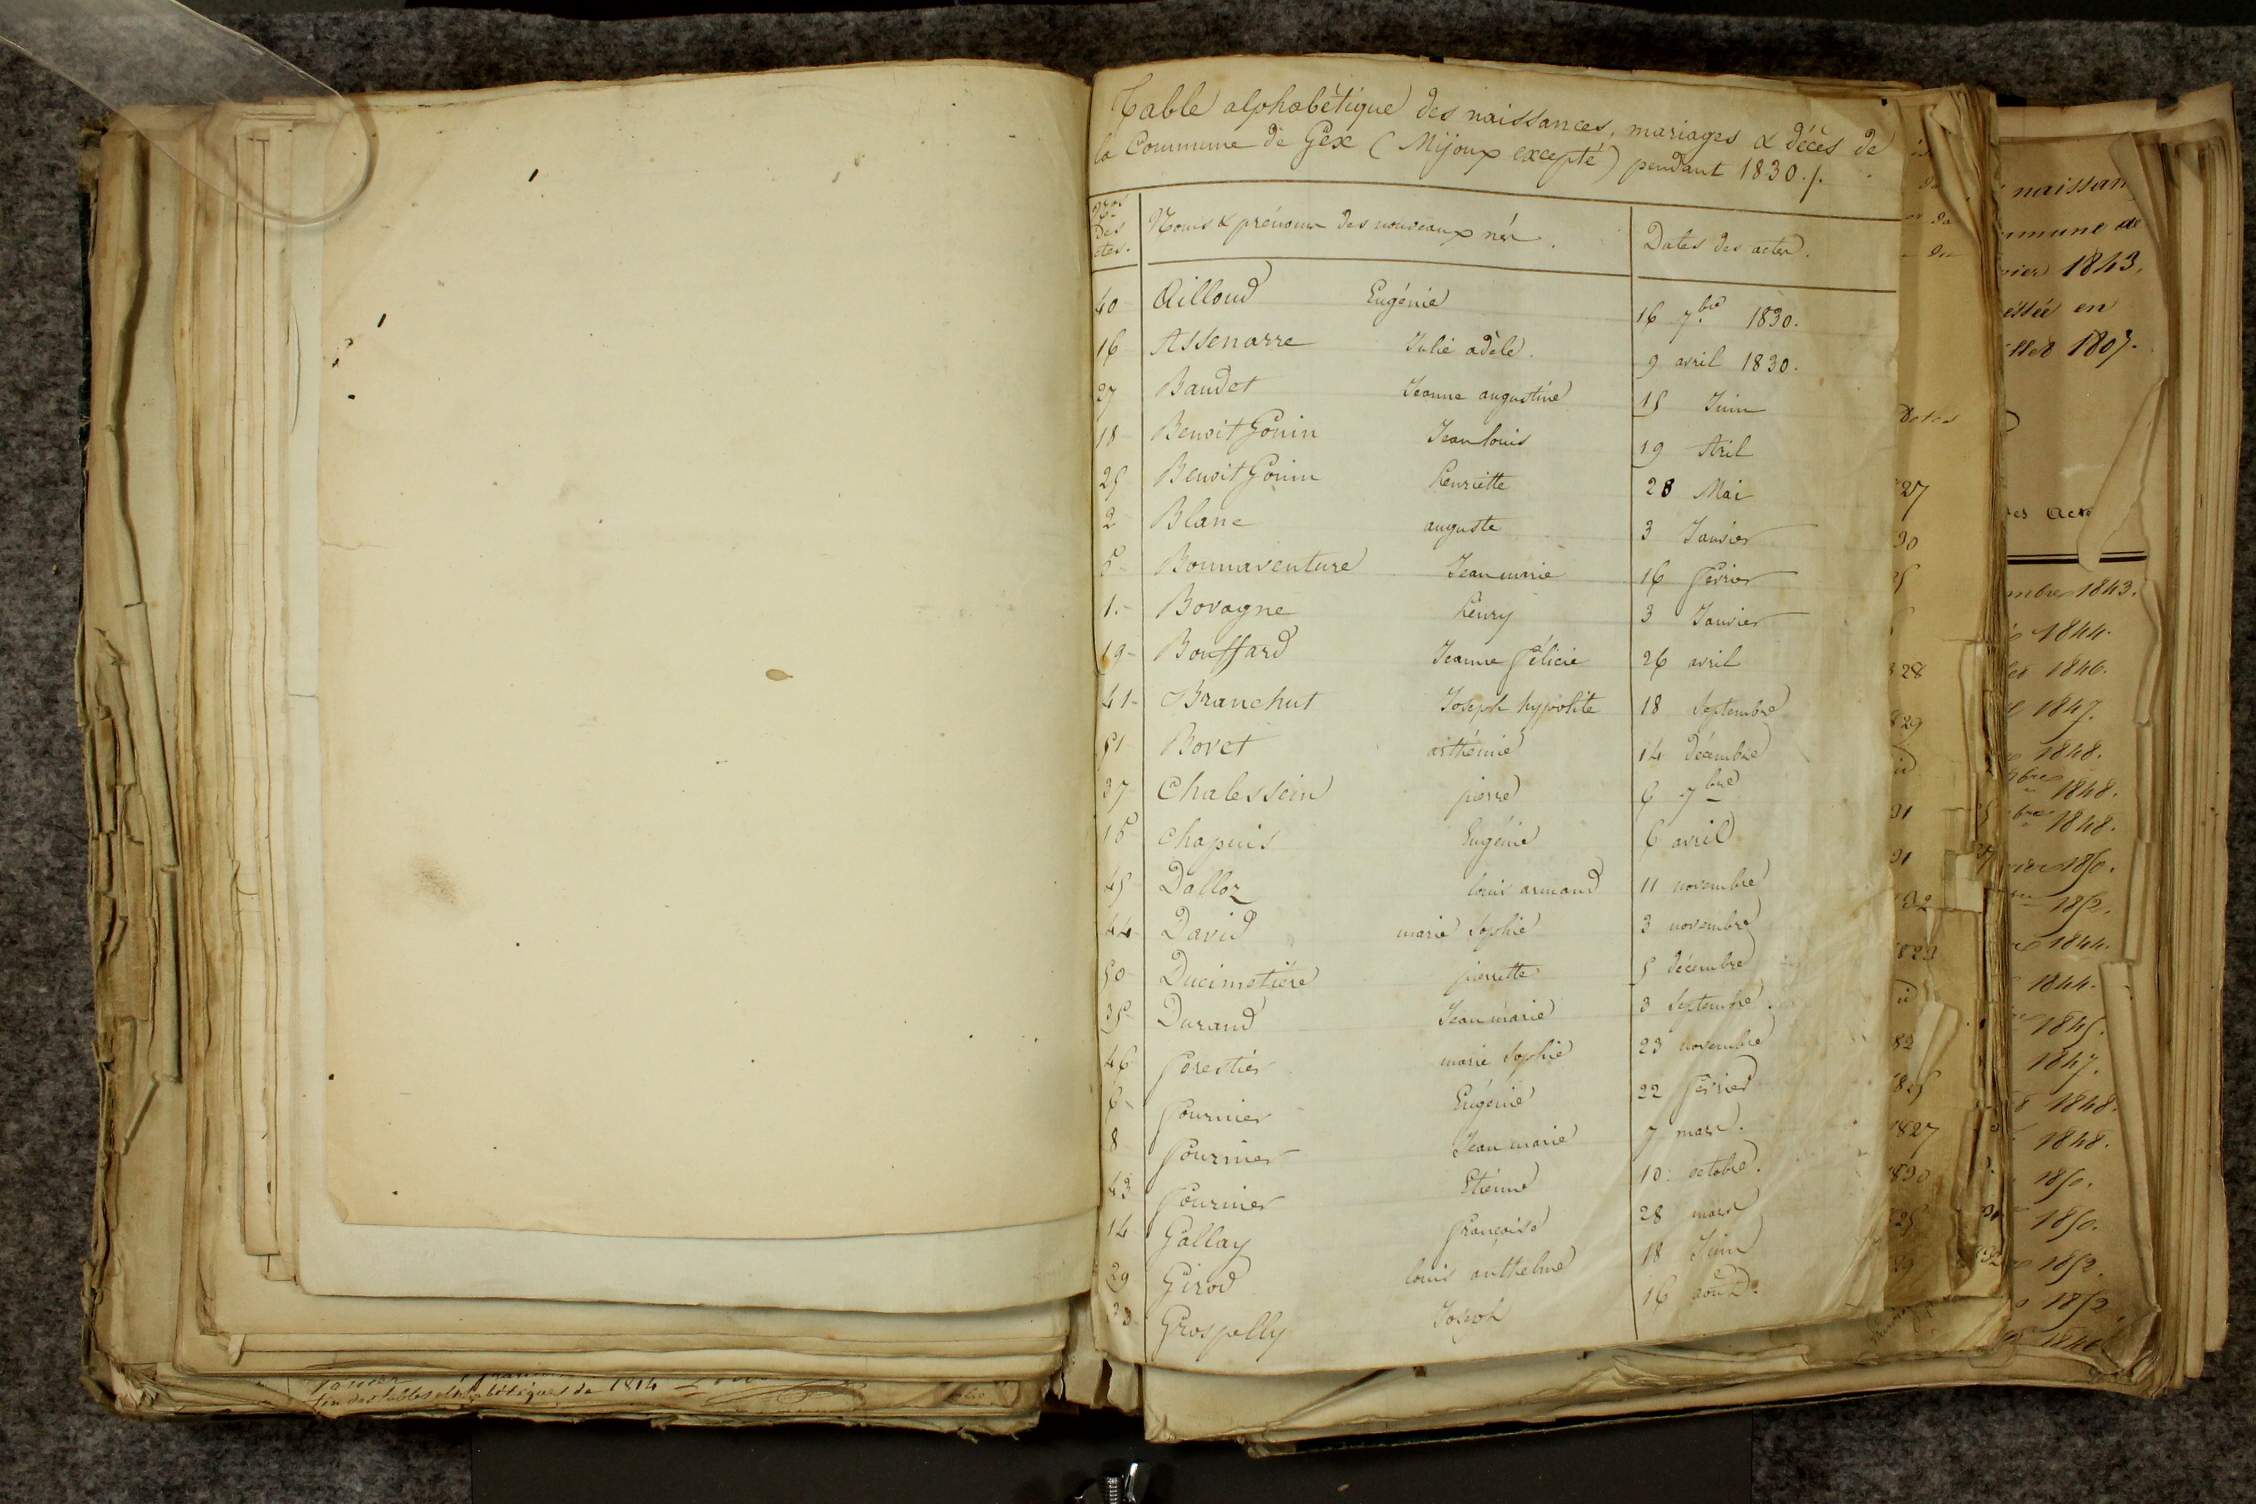 Table alphabétique des naissances, mariages & décès de
la Commune de Gex (Mijoux excepté) pendant 1830./.
Nros des ctes. Noms & prénoms des nouveaux nés. Dates des actes.
40 Ailloud Eugénie 16 7.bre 1830.
16 Assenarre Julie adèle. 9 avril 1830.
27 Baudet Jeanne augustine 15 Juin
18 Benoit Gonin Jean louis 19 Avril
25 Benoit Gonin henriette 28 Mai
2 Blanc auguste 3 Janvier
5 Bonnaventure Jean marie 16 février
1. Bovagne henry 3 Janvier
19 Bouffard Jeanne félicie 26 avril
41 Branchut Joseph hypolite 18 Septembre
51 Bovet arthémie 14 décembre
37 Chalessein pierre 6 7bre
15 Chapuis Eugénie 6 avril
45 Dalloz louis armand 11 novembre
44 David marie Sophie 3 novembre
50 Ducimetière pierrette 5 décembre
35 Durand Jean marie 3 Septembre.
46 forestier marie Sophie 23 novembre
6 fournier Eugénie 22 février
8 fournier Jean marie 7 mars.
43 fournier Etienne 10 octobre.
14 Gallay françoise 28 mars
29 Girod louis anthelme 18 Juin
Grospelly Joseph 16 août.
fin des tables alphabétiques de 1814
naissan
mmune de
vier 1843.
1807.
Dates
27
30
28
29
1827
1830
mbre 1843.
1844.
1846.
1847.
1848.
1848.
1848.
1850.
1852.
1844.
1844.
1845.
1847.
1848.
1848.
1850.
1850.
1852.
1852